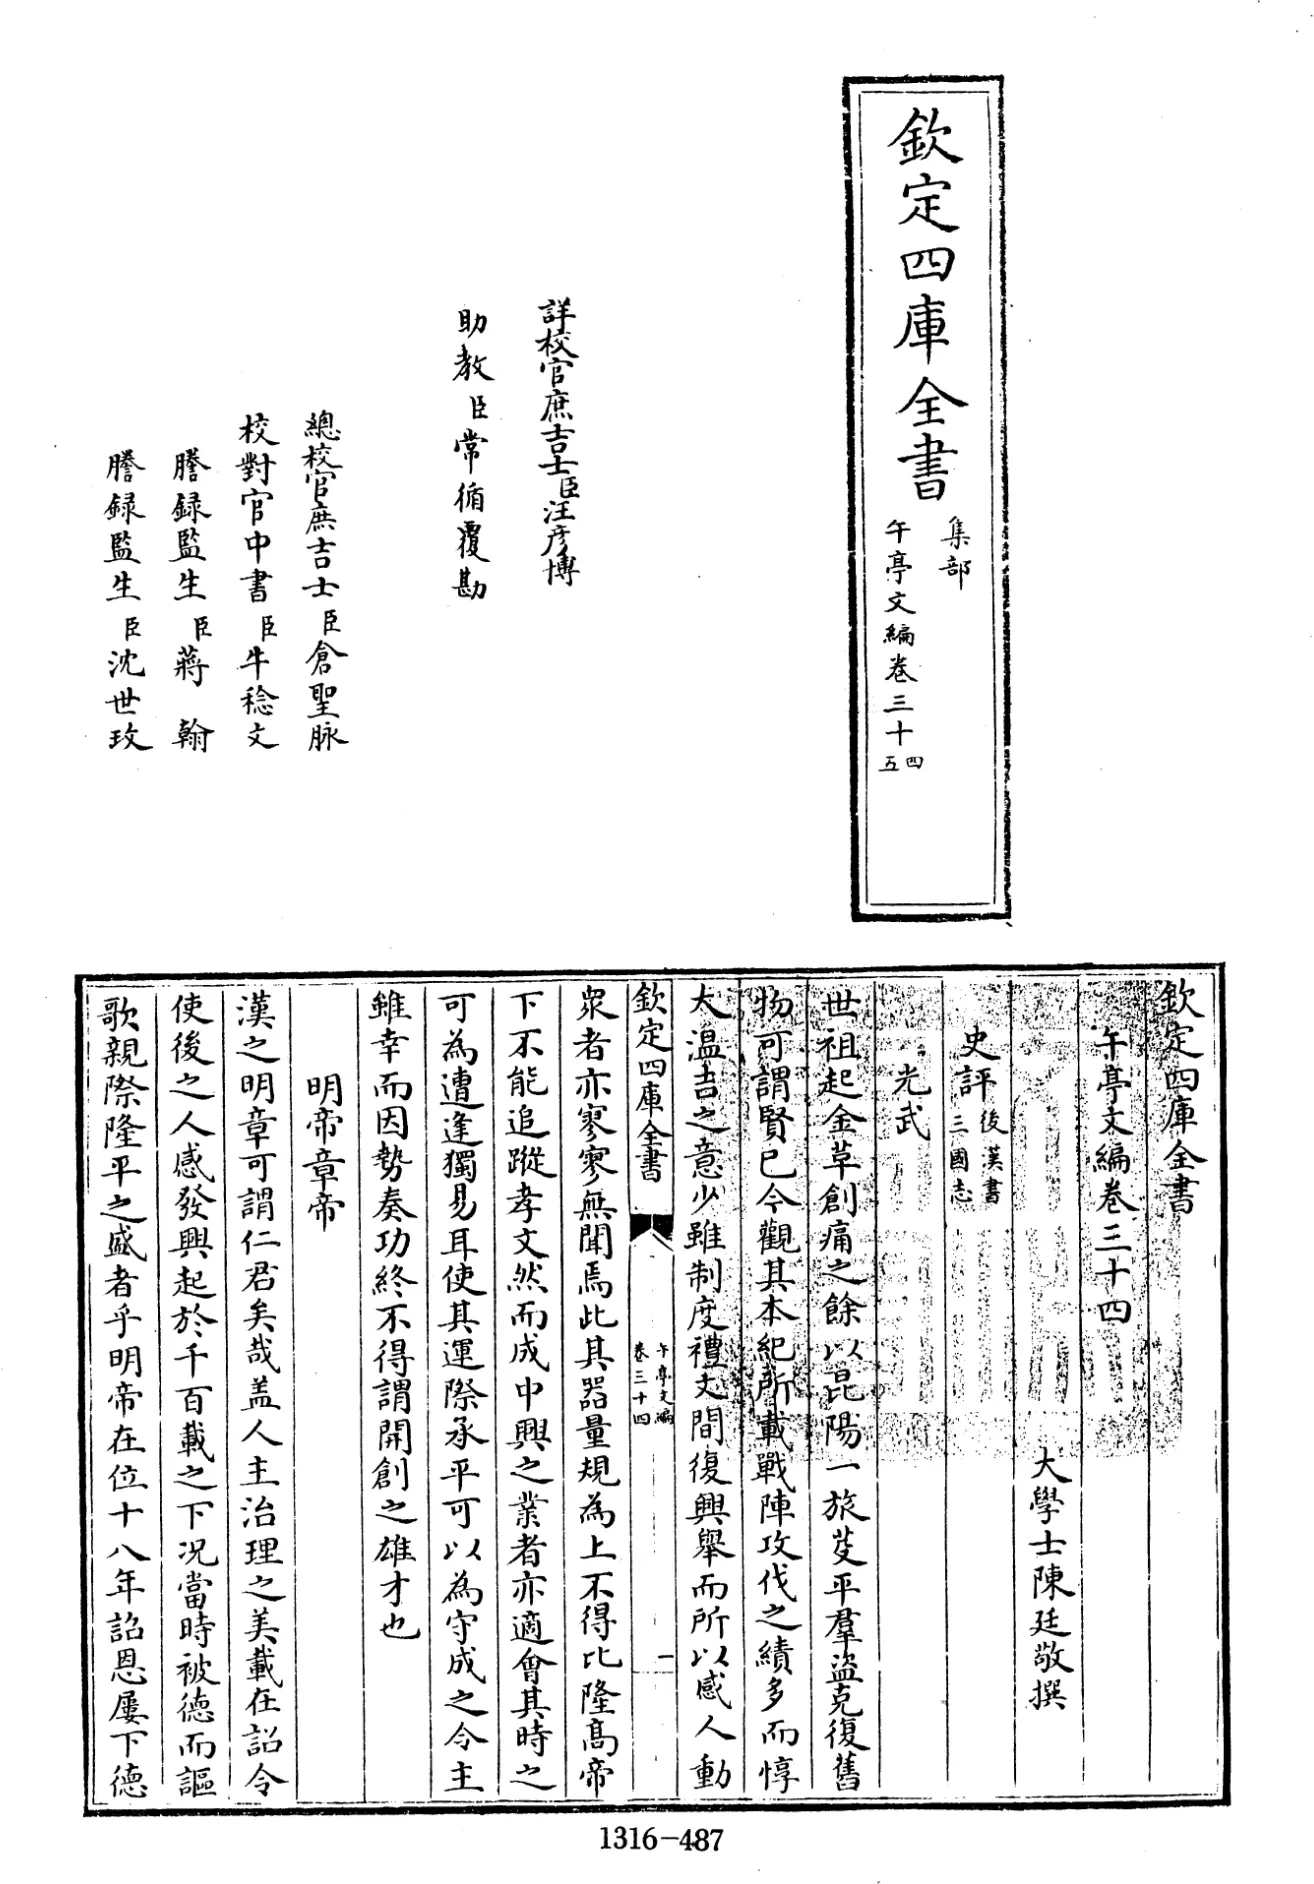 欽定四庫全書
集部
午亭文編卷三十四五
詳校官庶吉士臣汪彦博
助教臣常循覆勘
總校官庶吉士臣倉聖脉
校對官中書臣牛稔文
謄録監生臣蔣翰
謄録監生臣沈世玫
欽定四庫全書
午亭文編卷三十四
大學士陳廷敬撰
史評後漢書三國志
光武
世祖起金草創痛之餘以昆陽一旅芟平羣盜克復舊
物可謂賢已今觀其本紀所載戰陣攻伐之績多而惇
大温吉之意少雖制度禮文間復興舉而所以感人動
欽定四庫全書
午亭文編
卷三十四
一
衆者亦寥寥無聞焉此其器量規為上不得比隆高帝
下不能追蹤孝文然而成中興之業者亦適會其時之
可為遭逢獨易耳使其運際承平可以為守成之令主
雖幸而因勢奏功終不得謂開創之雄才也
明帝章帝
漢之明章可謂仁君矣哉盖人主治理之美載在詔令
使後之人感發興起於千百載之下况當時被德而謳
歌親際隆平之盛者乎明帝在位十八年詔恩屢下德
1316-487